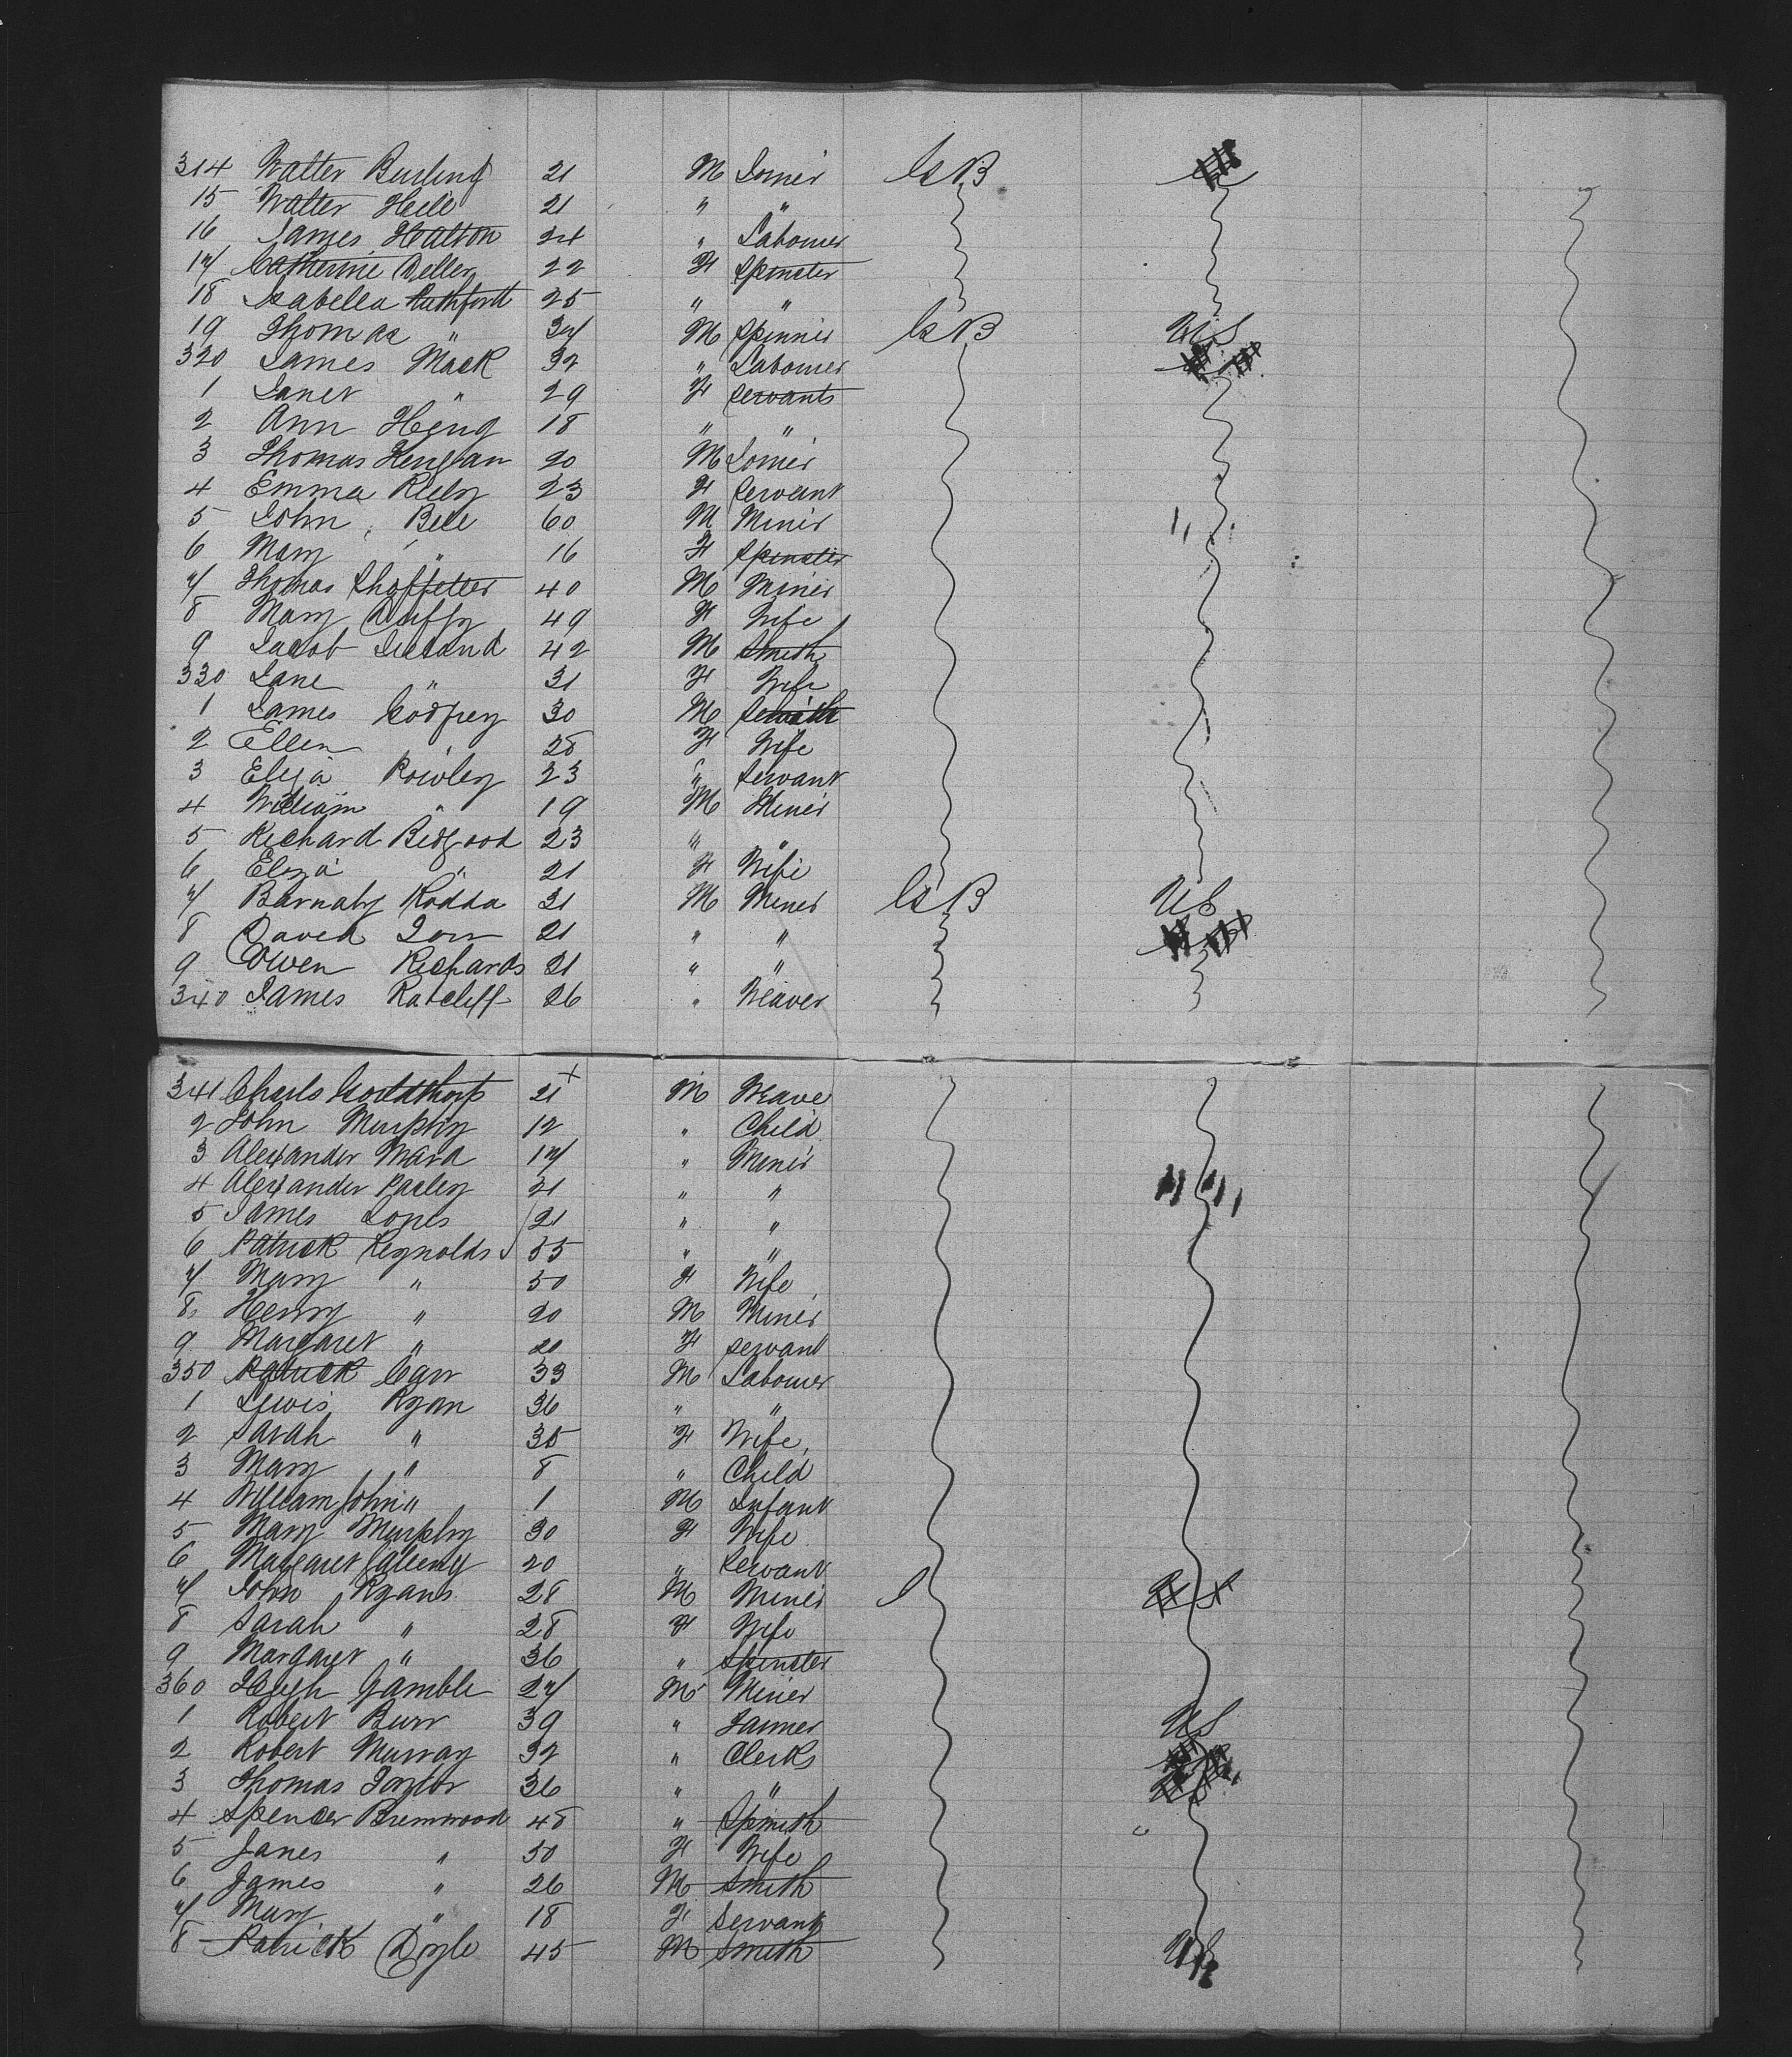 314 Walter Burling 21 M Joiner Gt B
15 Walter Hele 21 " "
16 James Halton 24 " Labourer
17 Catherine Deller 22 F Spinster
18 Isabella Ruthforth 25 " "
19 Thomas " 34 M Spinner Gt B US
320 James Mack 32 " Labourer
1 Janet " 29 F Servants
2 Ann 18 " "
3 Thomas 20 M Joiner
4 Emma 23 F Servant
5 John Bell 60 M Miner
6 Mary " 16 F Spinster
7 Thomas 40 M Miner
8 Mary Duffy 49 F Wife
9 Jacob 42 M Smith
330 Jane " 31 F Wife
1 James Godfrey 30 M
2 Ellen 28 F Wife
3 Eliza Rowley 23 " Servant
4 William " 19 M Miner
5 Richard Bidgood 23 " "
6 Eliza " 21 F Wife
7 Barnaby Rodda 31 M Miner Gt B US
8 David 21 " "
9 Owen Richards 21 " "
340 James Ratcliff 26 " Weaver
341 Charls Gouldthorp 21 x M Weave
2 John Murphy 12 " Child
3 Alexander Ward 17 " Miner
4 Alexander 21 " "
5 James Jones 21 " "
6 Patrick Reynolds 55 " "
7 Mary " 50 F Wife
8 Henry " 20 M Miner
9 Margaret " 20 F Servant
350 Patrick Carr 33 M Labourer
1 Lewis Ryan 36 " "
2 Sarah " 35 F Wife
3 Mary " 8 " Child
4 William John " 1 M Infant
5 Mary Murphy 30 F Wife
6 Margaret 20 " Servant
7 John Ryans 28 M Miner
8 Sarah " 28 F Wife
9 Margaret " 36 " Spinster
360 Hugh Gamble 27 M Miner
1 Robert Burr 39 " Farmer US
2 Robert Murray 32 " Clerks
3 Thomas Taylor 36 " "
4 Spencer Bremwood 48 " Spmith
5 Janes " 50 F Wife
6 James " 26 M Smith
7 Mary " 18 F Servant
8 Patrick Doyle 45 M Smith US